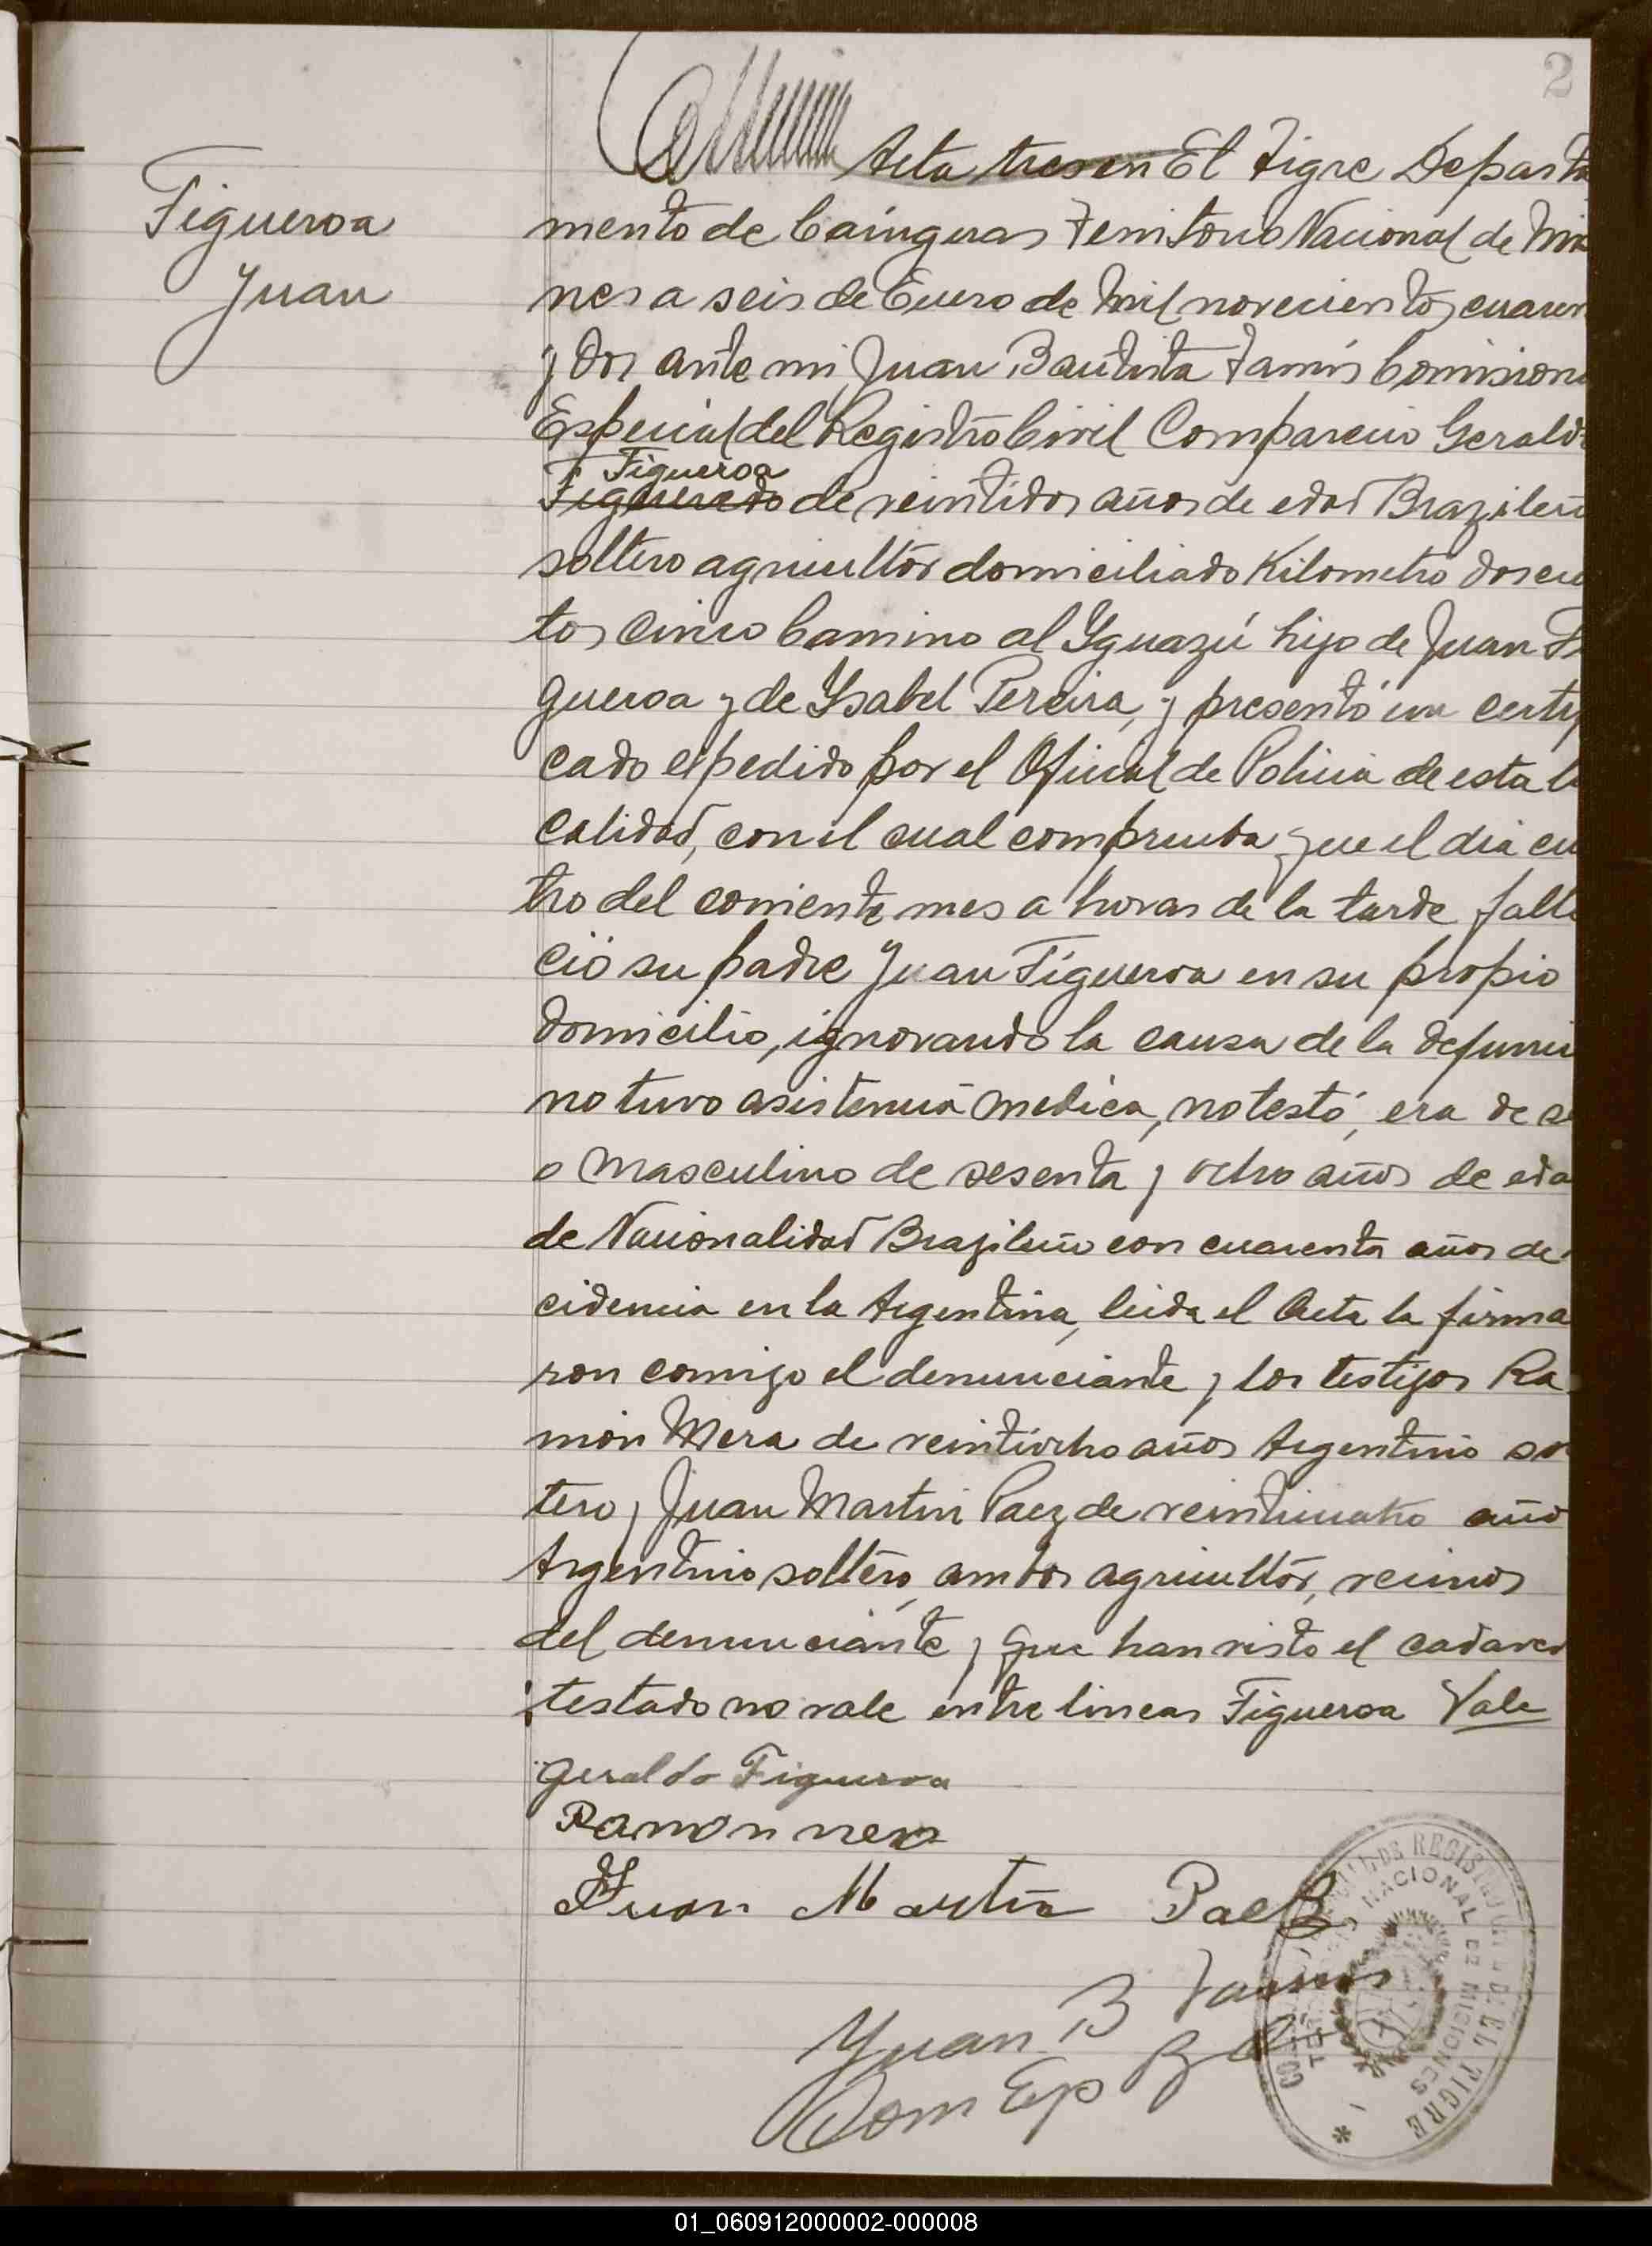 2
Figueroa
Juan
Acta tres en El Tigre Departa
mento de Cainguas Territorio Nacional de Misio
nes a seis de Enero de mil novecientos cuaren
y dos ante mi Juan Bautista Tamis Comisiona
Especial del Registro Civil Compareció Geraldo
Figueroa
Figueredo de veintidos años de edad Brazileño
soltero agricultor domiciliado Kilometro doscien
tos cinco Camino al Yguazú hijo de Juan Fi
gueroa y de Ysabel Pereira, y presentó un certifi
cado espedido por el Oficial de Policia de esta lo
calidad, con el cual comprueba que el dia cua
tro del corriente mes a horas de la tarde falle
ció su padre Juan Figueroa en su propio
domicilio, ignorando la causa de la defunci
no tuvo asistencia medica, no testó, era de se
o masculino de sesenta y ocho años de eda
de Nacionalidad Brazileño con cuarenta años de
cidencia en la Argentina, leida el Acta la firma
ron comigo el denunciante y los testigos Ra
món Mera de veintiocho años Argentino sol
tero y Juan Martin Paez de veinticuatro año
Argentino soltero, ambos agricultor, vecinos
del denunciante y que han visto el cadaver
testado no vale entre lineas Figueroa Vale
Geraldo Figueroa
Ramon mera
Juan Martin Paez
Juan B Tamis
Com Esp R C
REGISTRO CIVIL DE EL TIGRE
TERRITORIO NACIONAL DE MISIONES
01_060912000002-000008